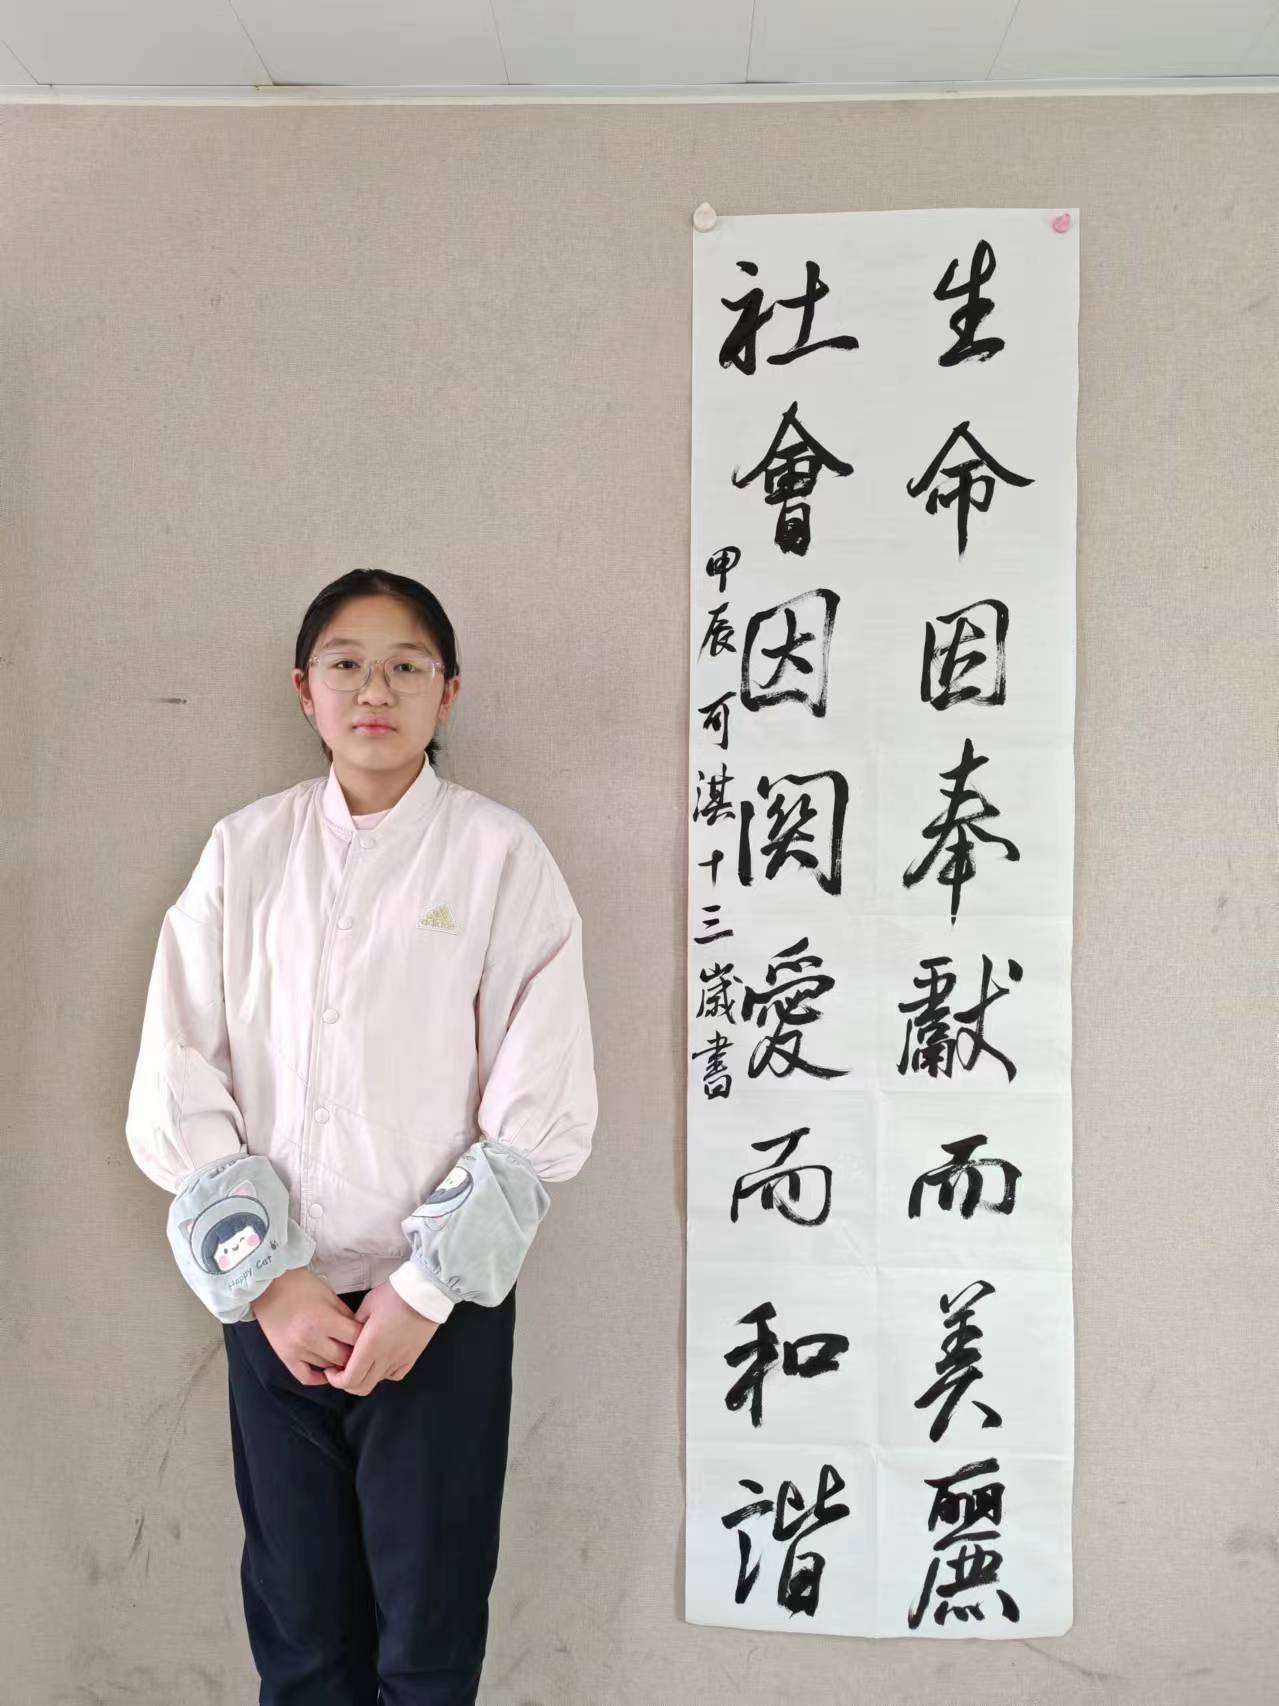 生命因奉獻而美麗
社會因関愛而和諧
甲辰可淇十三歲書
adidas
Happy Cat